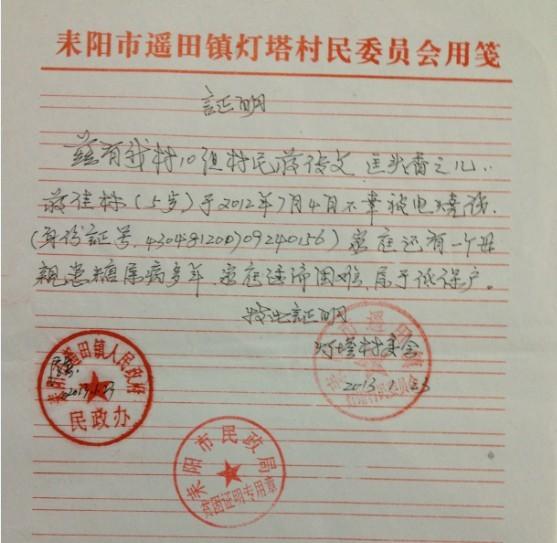 耒阳市遥田镇灯塔村民委员会用笺
证明
兹有我村10组村民蒋传文 匡兴香之儿:
蒋佳林(5岁)于2012年7月4日不幸被电烧伤.
(身份証号.430481200709240156)家庭还有一个母
亲患糖尿病多年.家庭经济困难.属于低保户。
特此证明
灯塔村委会
2013.
耒阳市遥田镇人民政府
民政办
耒阳市民政局
贫困证明专用章